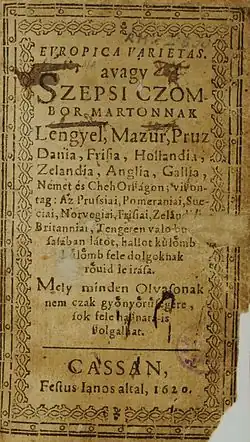 EVROPICA VARIETAS.
avagy
SZEPSI CZOM-
BOR MARTONNAK
Lengyel, Mazur, Pruz
Dania, Frisia, Hollandia,
Zelandia, Anglia, Gallia,
Nemet és Cheh Orságon; viſon-
tag: Az Pruſsiai, Pomeraniai, Sue-
ciai, Norvegiai, Friſiai, Zelandiai
Britanniai, Tengeren valo bu-
ſaſában látot, hallot külömb
külömb fele dolgoknak
röuid le iraſa.
Mely minden Olvaſonak
nem czak gyönyörüſegere,
ſok fele haſnara is
ſzolgalhat.
CASSAN,
Feſtus Ianos altal, 1620.